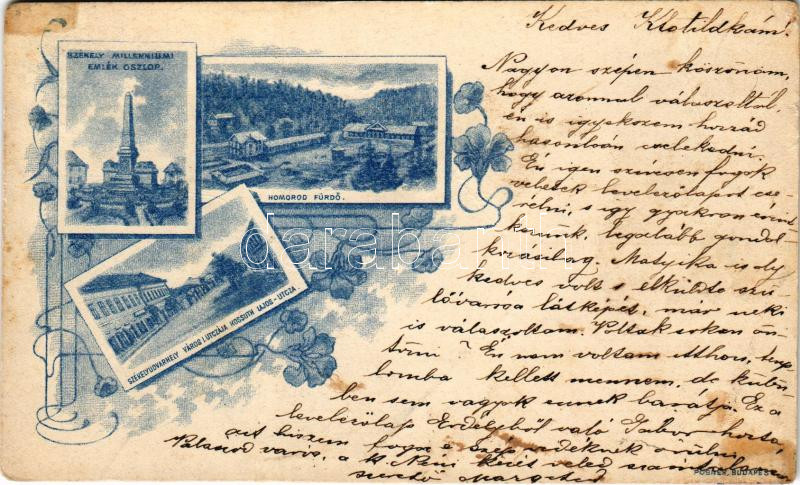 SZÉKELY MILLENNIUMI
EMLÉK OSZLOP.
HOMOROD FÜRDŐ.
SZÉKELYUDVARHELY VÁROS I. UTCZÁJA KOSSUTH LAJOS-UTCZA.
darabanth
Kedves Klotildkám!
Nagyon szépen köszönöm,
hogy azonnal válaszoltál,
én is igyekszem hozzád
hasonlóan cselekedni.
Én igen szívesen fogok
veletek levelezőlapot cse-
rélni, s így gyakran
legalább gondol-
Matyika is oly
kedves volt s elküldte szü-
lővárosa látképét, már neki
is válaszoltam. Voltak sokan ön-
tözni? Én nem voltam itthon, temp-
lomba kellett mennem, de külön-
ben sem vagyok ennek barátja. Ez a
levelezőlap Erdélyből való Gábor hozta,
azt hiszem fogsz a szép vidéknek örülni.
város, a
szerető Margitod
POSNER, BUDAPEST